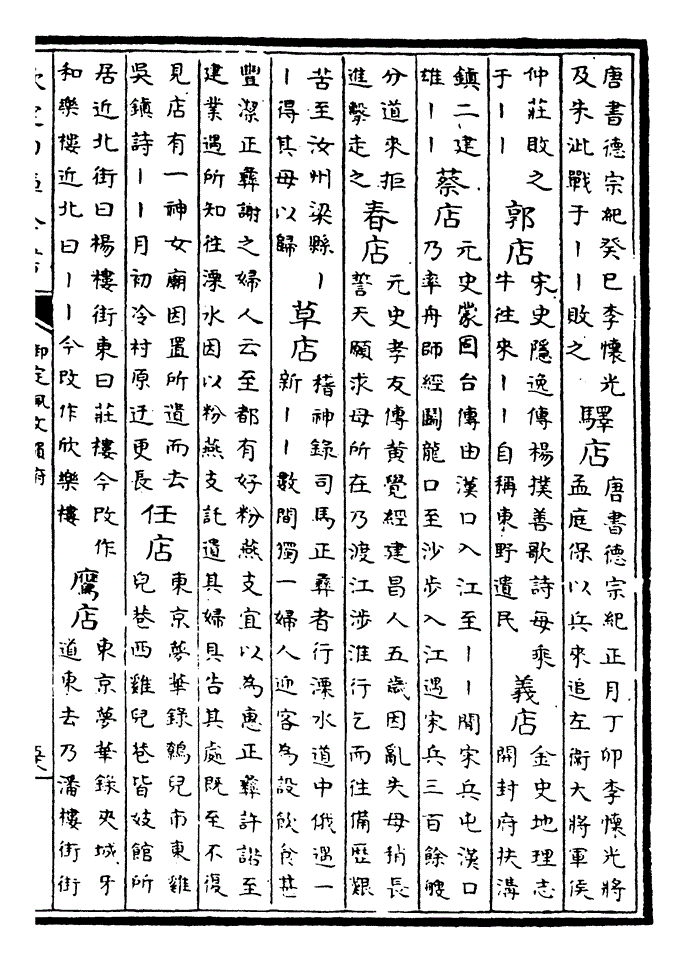 唐書德宗紀癸巳李懷光
及朱泚戰于丨丨敗之
驛店
唐書德宗紀正月丁卯李懷光將
孟庭保以兵來追左衛大將軍侯
仲莊敗之
于丨丨
郭店
宋史隱逸傳楊撲善歌詩每乘
牛往來丨丨自稱東野遺民
義店
金史地理志
開封府扶溝
鎮二建
雄丨丨
蔡店
元史蒙固台傳由漢口入江至丨丨聞宋兵屯漢口
乃率舟師經鬭龍口至沙步入江遇宋兵三百餘艘
分道來拒
進擊走之
春店
元史孝友傳黄覺經建昌人五歲因亂失母稍長
誓天願求母所在乃渡江涉淮行乞而往備歷艱
苦至汝州梁縣丨
丨得其母以歸
草店
稽神錄司馬正彞者行溧水道中俄遇一
新丨丨數間獨一婦人迎客為設飲食甚
豐潔正彞謝之婦人云至都有好粉燕支宜以為惠正彞許諾至
建業遇所知往溧水因以粉燕支託遺其婦具告其處既至不復
見店有一神女廟因置所遺而去
吳鎮詩丨丨月初冷村原迂更長
任店
東京夢華錄鵓兒市東雞
兒巷西雞兒巷皆妓館所
居近北街曰楊樓街東曰莊樓今改作
和樂樓近北曰丨丨今改作欣樂樓
鷹店
東京夢華錄夾城牙
道東去乃潘樓街街
御定佩文韻府